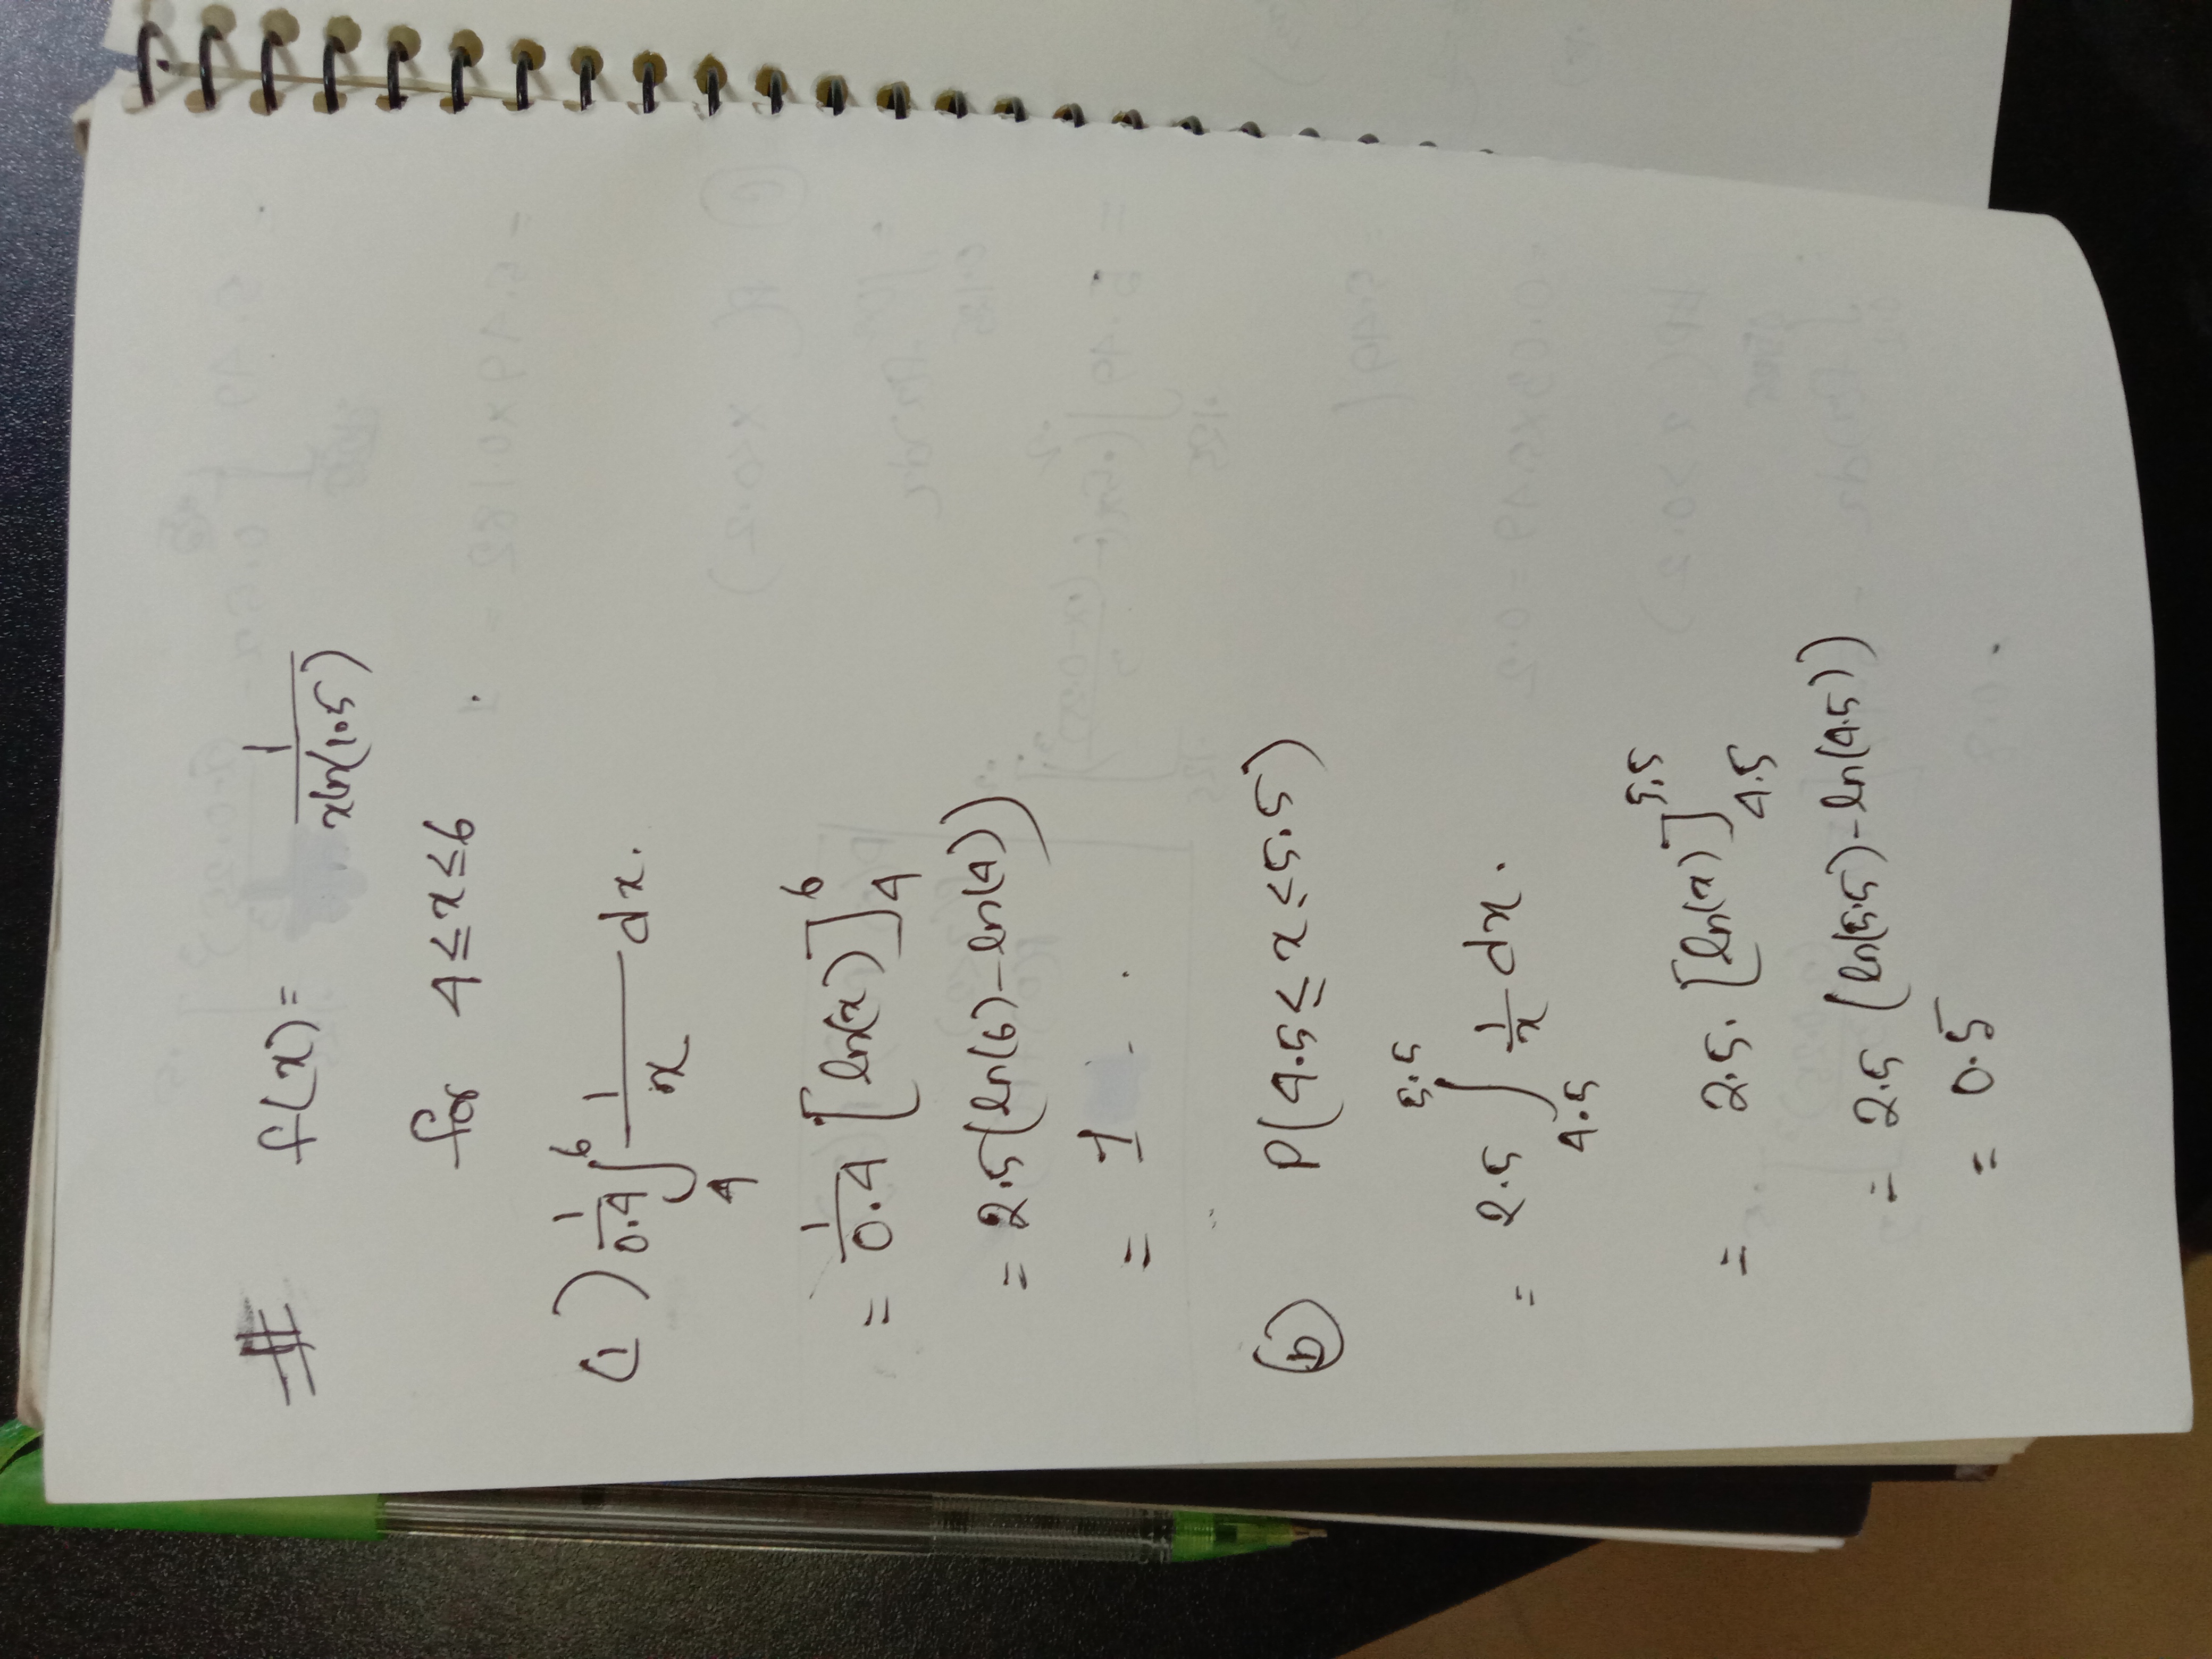 # f(x) = 1/(x ln(1.5))
for 4 ≤ x ≤ 6
(1) 1/0.4 ∫_4^6 1/x dx.
= 1/0.4 [ln(x)]_4^6
= 2.5 (ln(6) - ln(4))
= 1
(b) P(4.5 ≤ x ≤ 5.5)
= 2.5 ∫_4.5^5.5 1/x dx.
= 2.5. [ln(x)]_4.5^5.5
= 2.5 (ln(5.5) - ln(4.5))
= 0.5